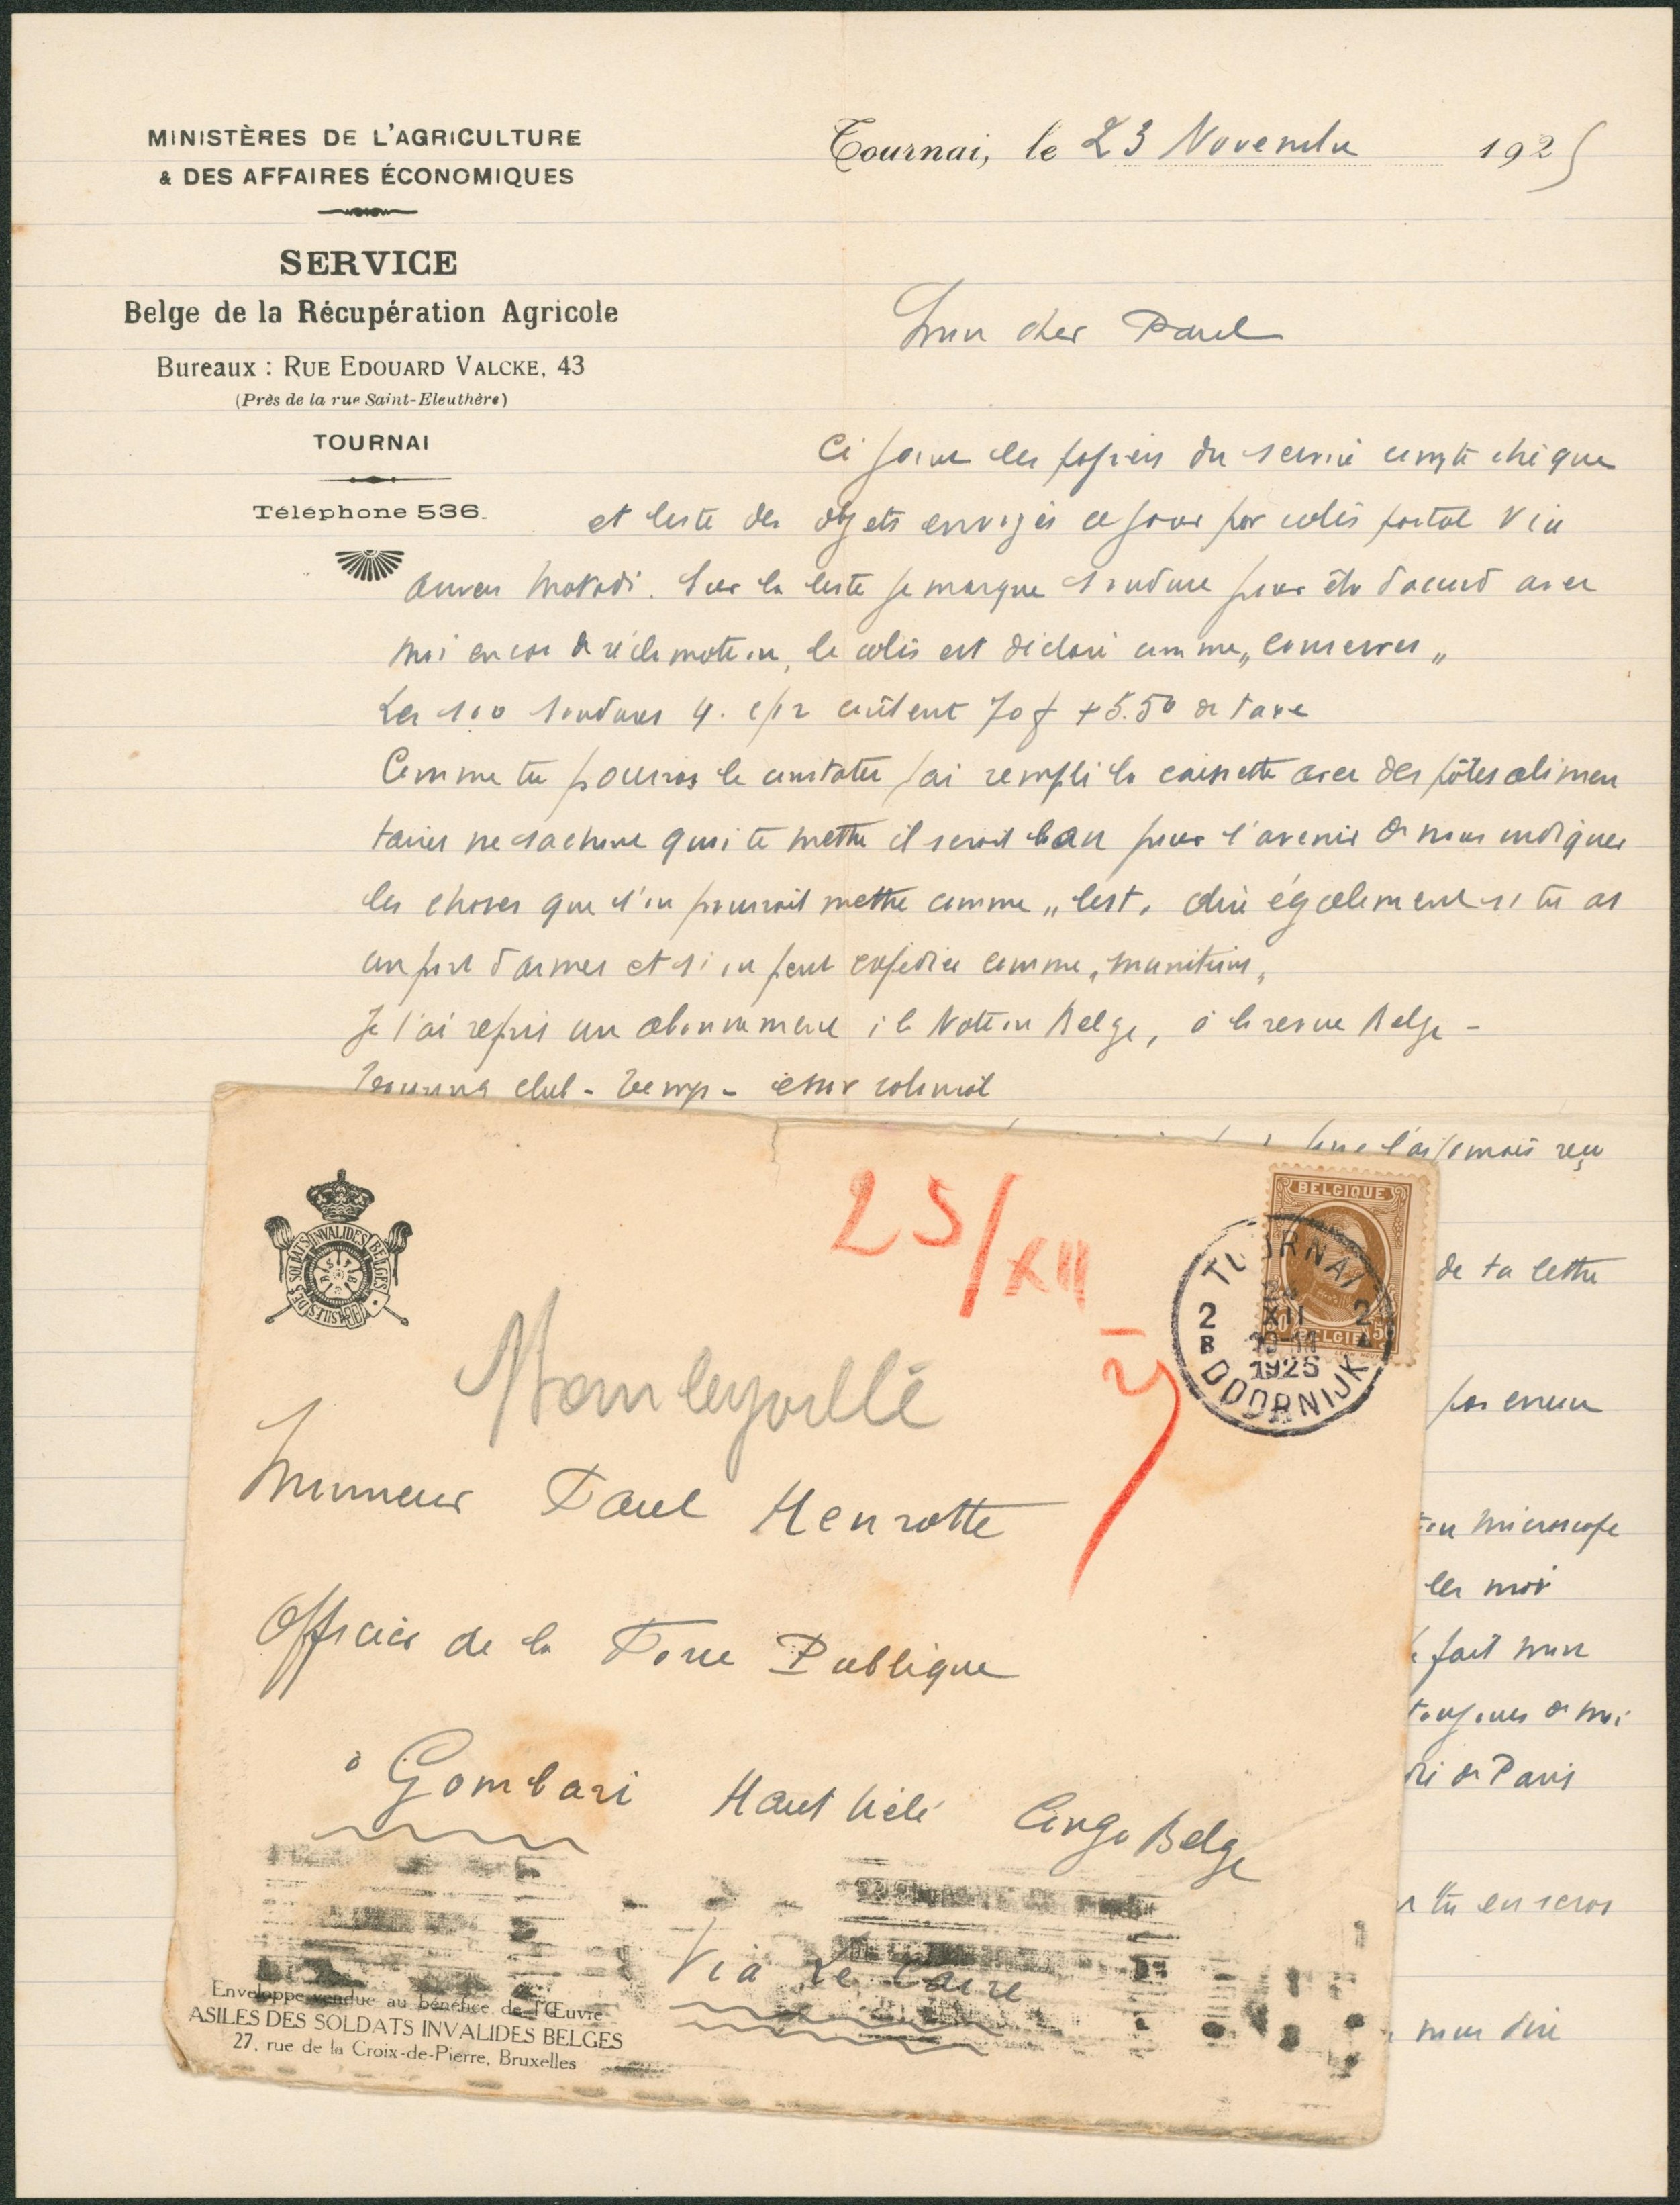 MINISTÈRES DE L'AGRICULTURE
& DES AFFAIRES ÉCONOMIQUES
SERVICE
Belge de la Récupération Agricole
Bureaux : RUE EDOUARD VALCKE, 43
(Près de la rue Saint-Eleuthère)
TOURNAI
Téléphone 536.
Tournai, le 23 Novembre 1925
Mon cher Paul
Ci joint les papiers du service compte chèque
et liste des objets envoyés ce jour par colis postal via
Anvers Matadi. Sur la liste je marque soudure pour être d'accord avec
moi en cas de réclamation, le colis est déclaré comme „conserves„
Les 100 soudures 4. coûtent 70 f + 5.50 de taxe
Comme tu pourras le constater j'ai rempli la caissette avec des pâtes alimen
taires ne sachant quoi te mettre il serait bon pour l'avenir de nous indiquer
les choses que l'on pourrait mettre comme „lest„ dire également si tu as
un port d'armes et si on peut expédier comme „munitions„
Je t'ai repris un abonnement à la Nation Belge, à la revue Belge -
club - essor colonial
l'ai jamais reçu
de ta lettre
par erreur
ton microscope
les moi
fait mon
toujours de moi
de Paris
tu en seras
nous dire
ASILES DES SOLDATS INVALIDES BELGES
25/XII
25
BELGIQUE
50 BELGIË 50
TOURNAI
2 XII 2
B
1925
DOORNIJK
Stanleyville
Monsieur Paul Henrotte
Officier de la Force Publique
à Gombari Haut Uélé Congo Belge
Via Le Caire
Enveloppe vendue au bénéfice de l'Œuvre
ASILES DES SOLDATS INVALIDES BELGES
27, rue de la Croix-de-Pierre, Bruxelles